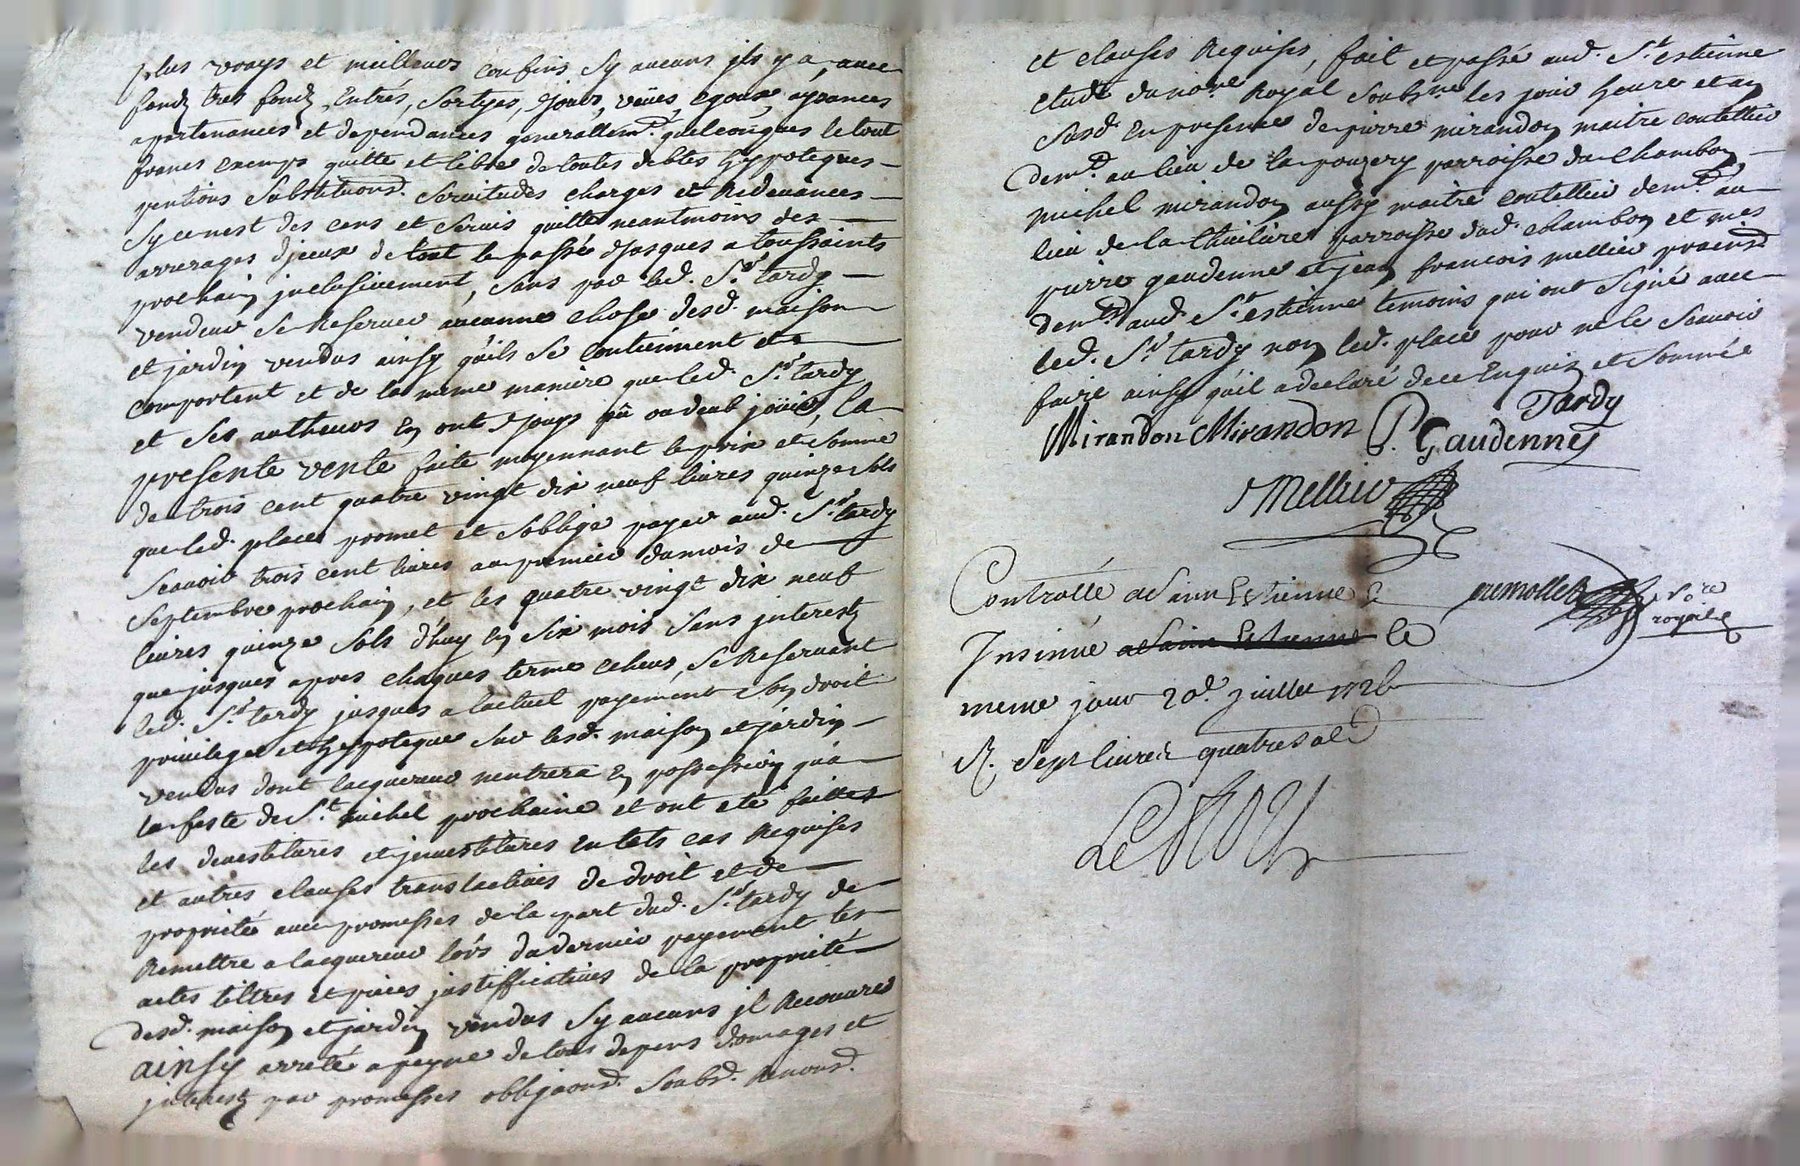 plus vrays et meilleurs confins sy aucuns jls y a, avec
fondz tres fondz, Entrés, Sortyes, Jours, veües, egoux, aysances
apartenances et dependances generallemt. quelconques le tout
francs exemps quitte et libre de toutes debtes hypoteques
pentions Substitutions. Servitudes charges et Redevances
Sy ce nest des cens et Servis quitte neantmoins des
arrerages djceux de tout le passé Jusques a toussaints
prochain jnclusivement, Sans par led. Sr. tardy
vendeur Se Reserver aucunne chose desd. maison
et jardin vendus ainsy quils Se contiennent et
comportent et de la meme maniere que led. Sr. tardy
et Ses autheurs En ont Jouy pû ou deub joüir, la
presente vente faite moyennant le prix et Somme
de trois cent quatre vingt dix neuf livres quinze Sols
que led. place promet et Soblige payer aud. Sr. tardy
Scavoir trois cent livres au premier du mois de
Septembre prochain, et les quatre vingt dix neuf
livres quinze Sols d'huy En Six mois Sans jnterestz
que jusques apres chaques terme echeus, Se Reservant
led. Sr. tardy jusques a lactuel payement Son droit
privilege et hypoteque Sur lesd. maison et jardin
vendus dont lacquereur rentrera En possession qu'a
la feste de St. michel prochaine et ont eté faittes
les devestitures et jnvestitures En tels cas Requises
et autres clauses translactives de droit et de
proprieté avec promesses de la part dud. Sr. tardy de
Remettre a lacquereur lors du dernier payement les
actes tiltres et pieces justifficatives de la proprieté
desd. maison et jardin vendus Sy aucuns jl Recouvre
ainsy arreté a peyne de tous depens domages et
jnterestz par promesses obligaons. Soubd. Renons.
et clauses Requises, fait et passé aud. St. estienne
etude du nore. Royal Soubsne. les jour heure et an
Susd. En presence de pierre mirandon maitre coutellier
demt. au lieu de la pouzery parroisse du Chambon
michel mirandon aussy maitre coutellier demt. au
lieu de la thuiliere parroisse dud. chambon et mes
pierre gaudenne et jean francois mellier praens.
demts. aud. St. estienne temoins qui ont Signé avec
led. Sr. tardy non led. place pour ne le Scavoir
faire ainsy quil a declaré de ce Enquis et Sommé
Tardy
Mirandon Mirandon P. Gaudenne
Mellier
Controllé a Saint Estienne
nore
royal
Insinué a Saint Estienne le
meme jour 20e. juillet 1726
R. Sept livres quatre sols
Leroy